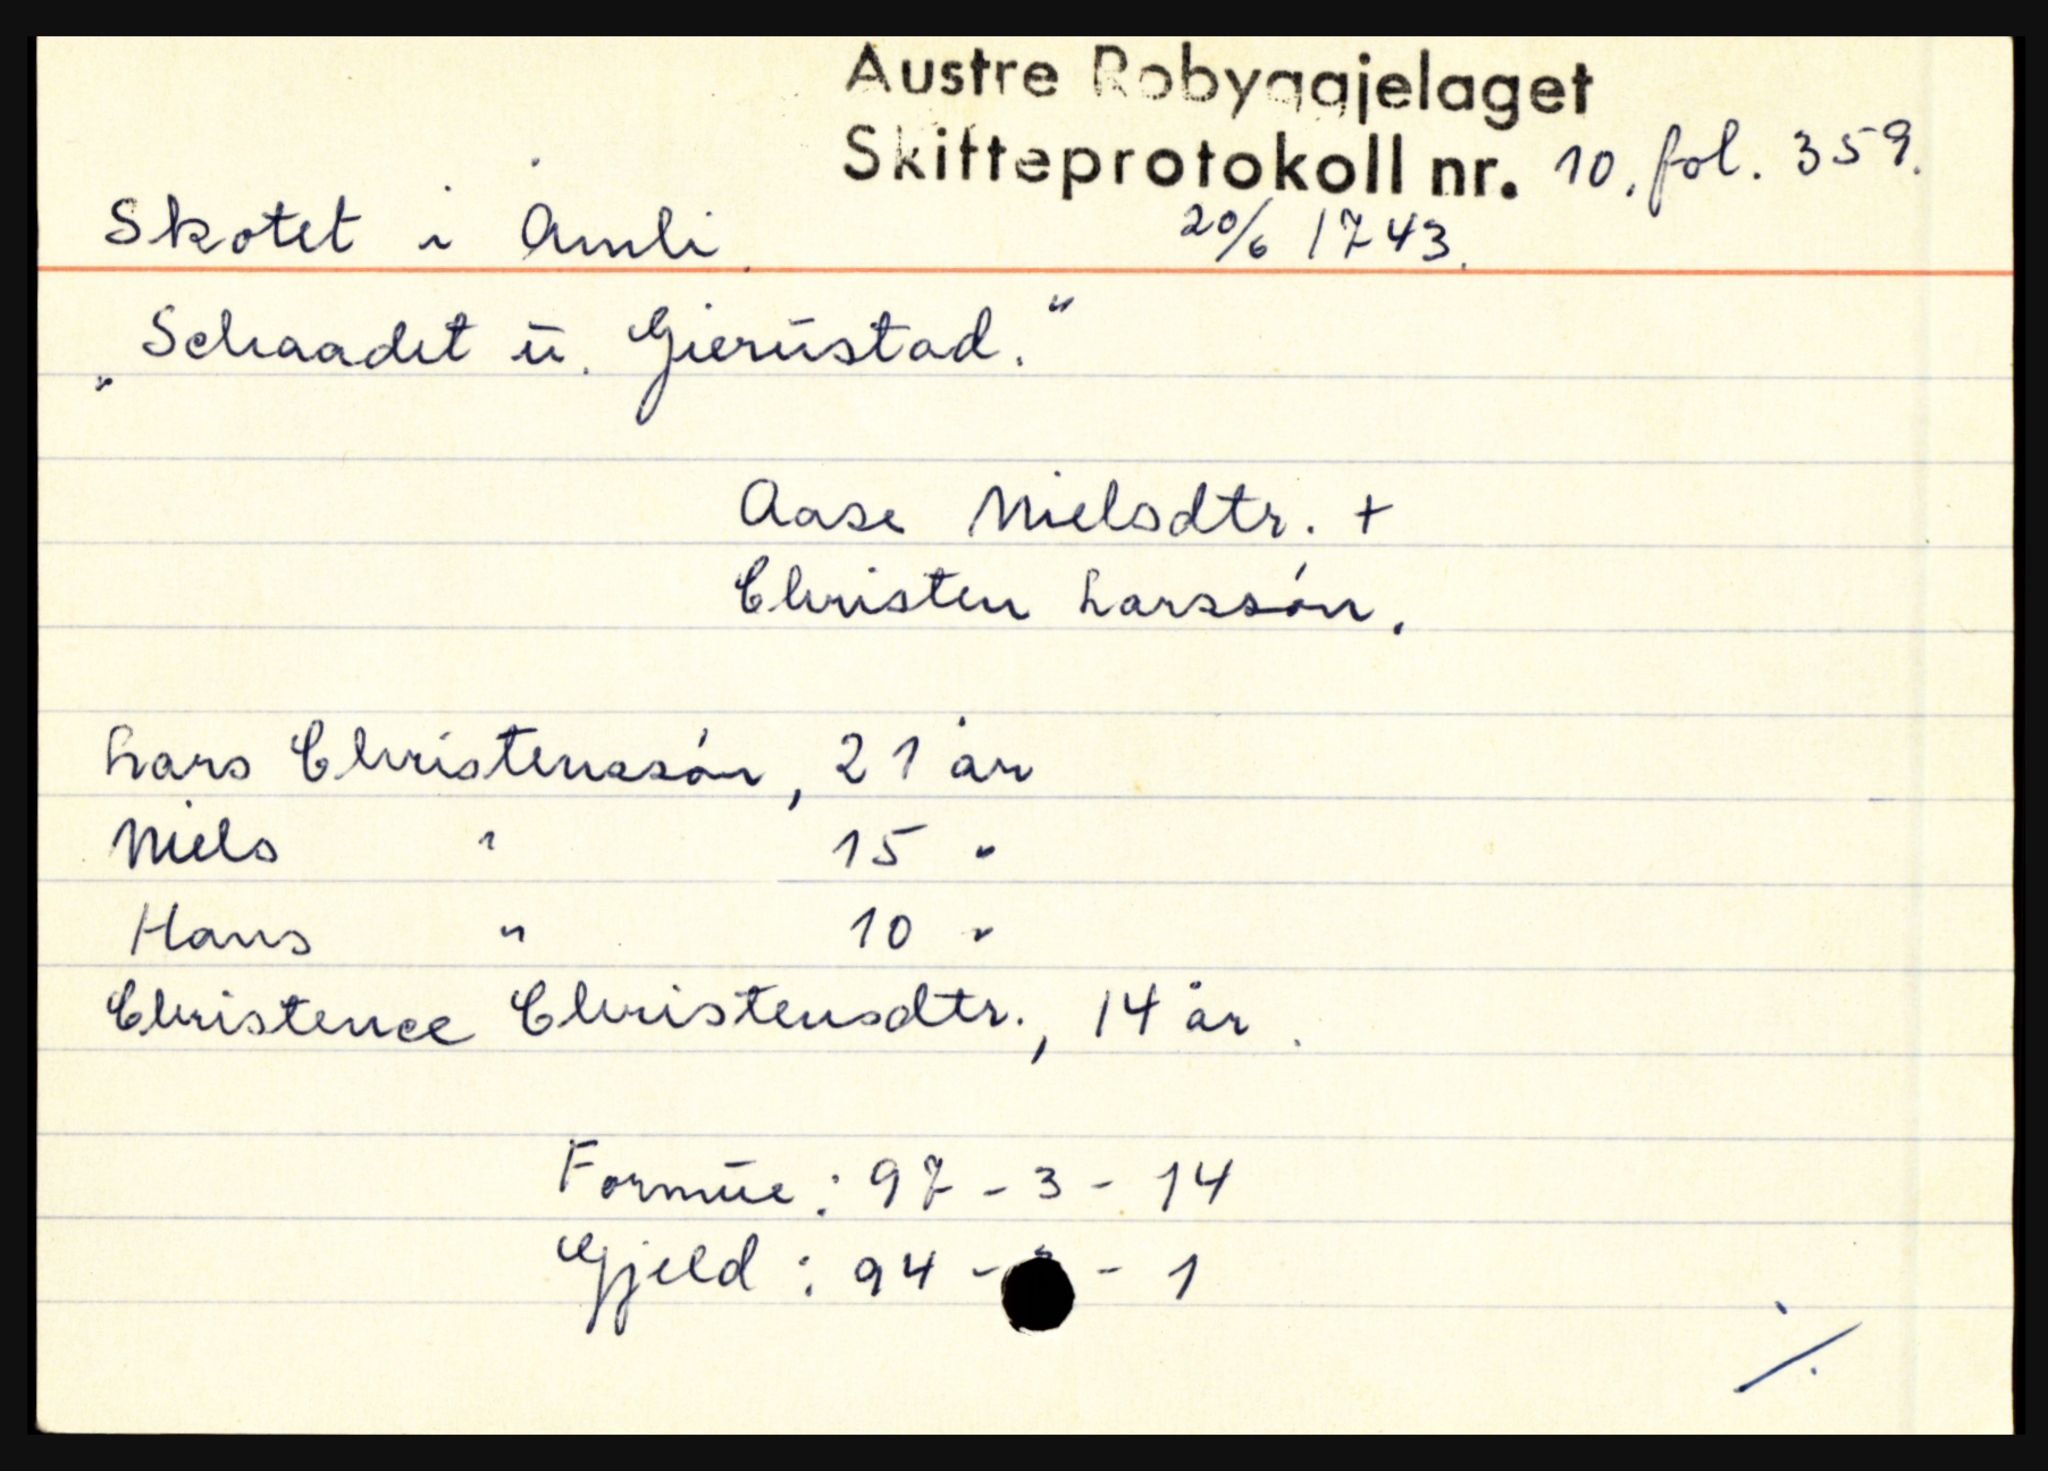 Austre Robyggjelaget
Skifteprotokoll nr. 10, fol. 359.
Skotet i Åmli. 20/6 1743.
„Schaadet ū. Gierūstad.“
Aase Nielsdtr. +
Christen Larssón.
Lars Christenssón, 21 år
Niels " 15 "
Hans " 10 "
Christence Christensdtr., 14 år.
Formūe: 97 - 3 - 14
Gjeld: 94 - - 1
./.